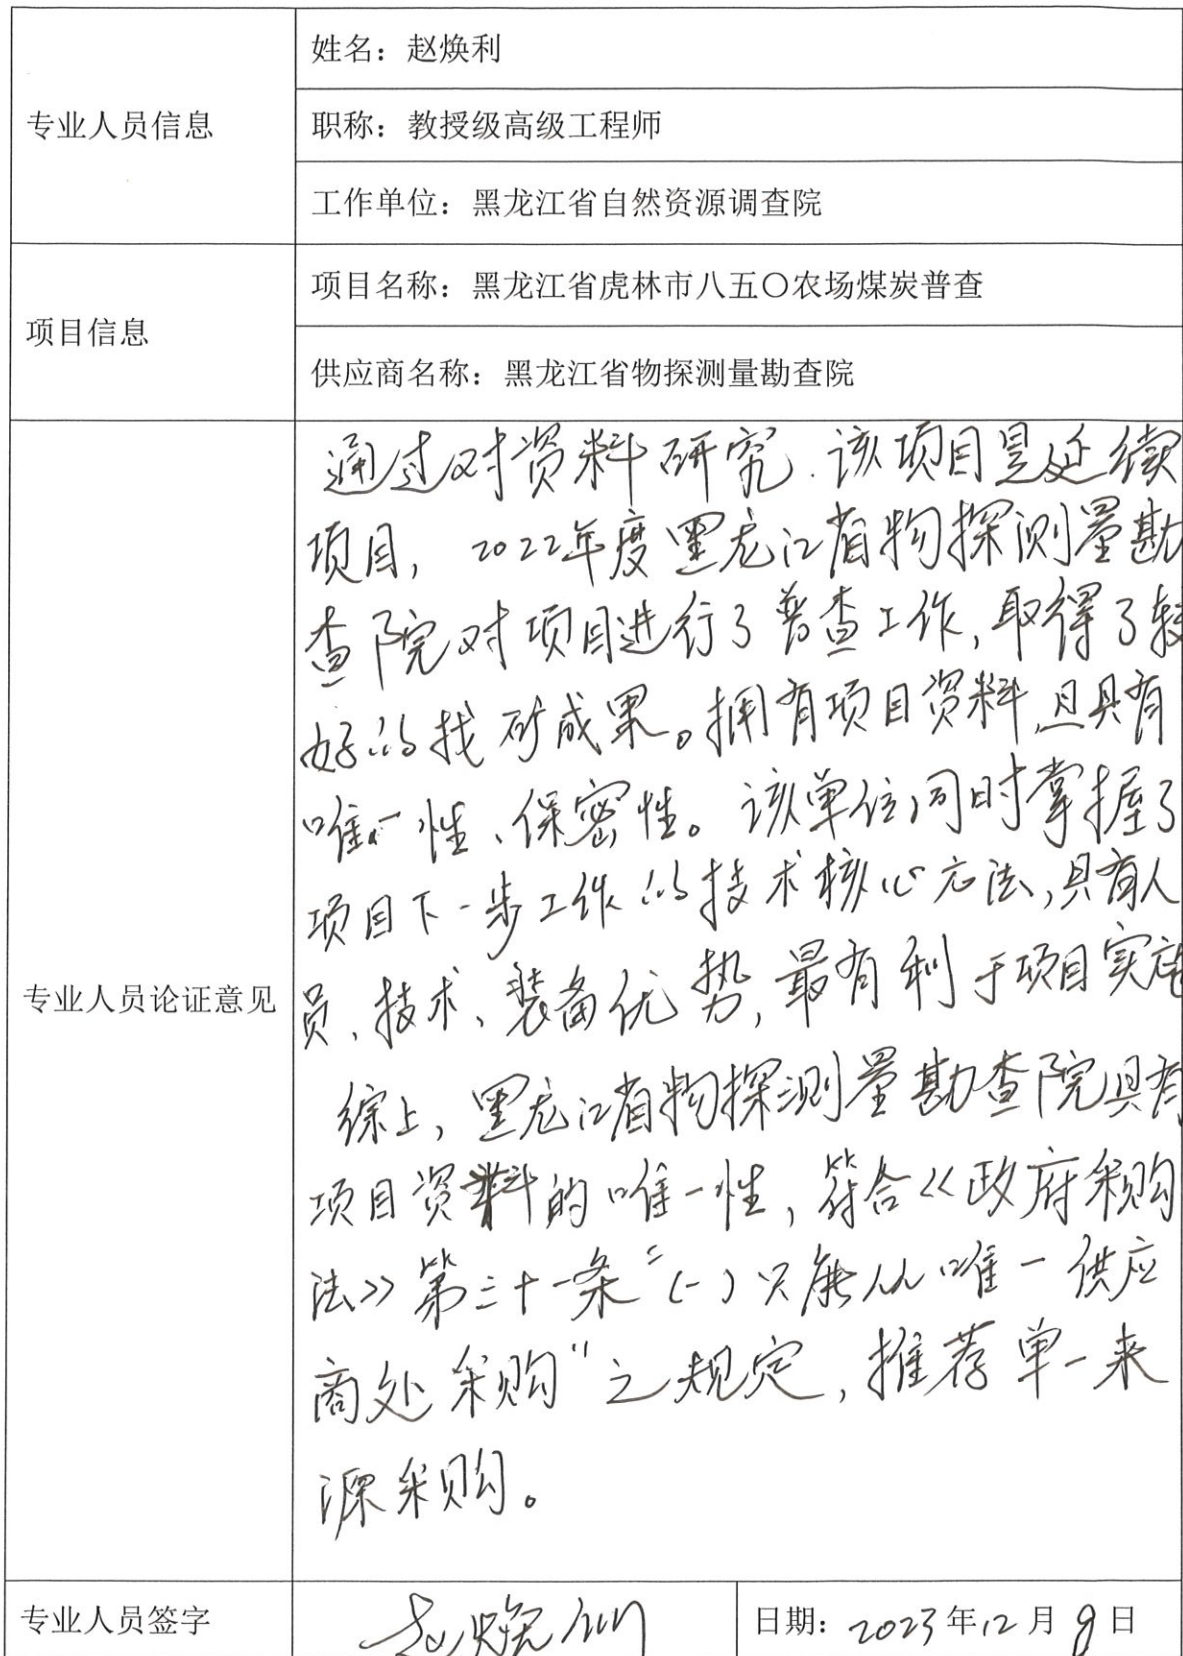 专业人员信息
姓名：赵焕利
职称：教授级高级工程师
工作单位：黑龙江省自然资源调查院
项目信息
项目名称：黑龙江省虎林市八五〇农场煤炭普查
供应商名称：黑龙江省物探测量勘查院
专业人员论证意见
通过对资料研究.该项目是延续
项目，2022年度黑龙江省物探测量勘
查院对项目进行了普查工作,取得了较
好的找矿成果。拥有项目资料,且具有
唯一性、保密性。该单位同时掌握了
项目下一步工作的技术核心方法,具有人
员、技术、装备优势,最有利于项目实施
综上,黑龙江省物探测量勘查院具有
项目资料的唯一性,符合《政府采购
法》第三十一条"(一)只能从唯一供应
商处采购"之规定,推荐单一来
源采购。
专业人员签字
赵焕利
日期：2023年12月9日